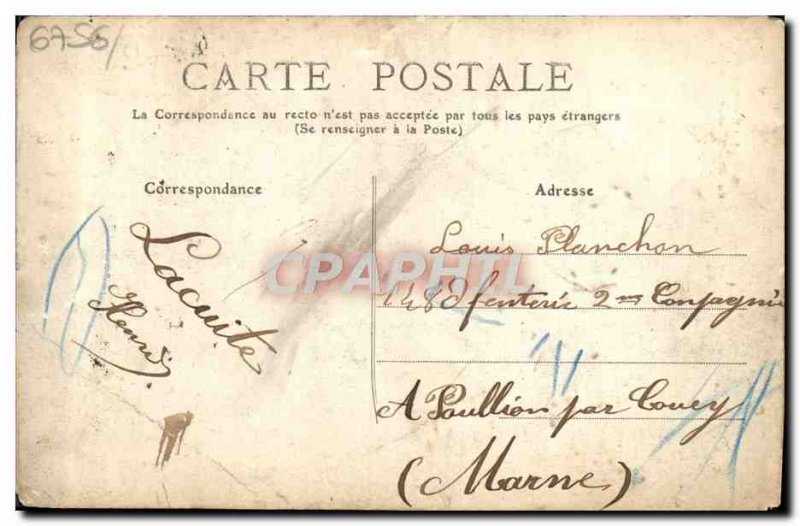 6756/
CARTE POSTALE
La Correspondance au recto n'est pas acceptée par tous les pays étrangers
(Se renseigner à la Poste)
Correspondance
Adresse
Lacuite
Henri
Louis Planchon
148 Ifenterie 2me Conpagnie
A Poullion par Coucy
(Marne)
CPAPHIL